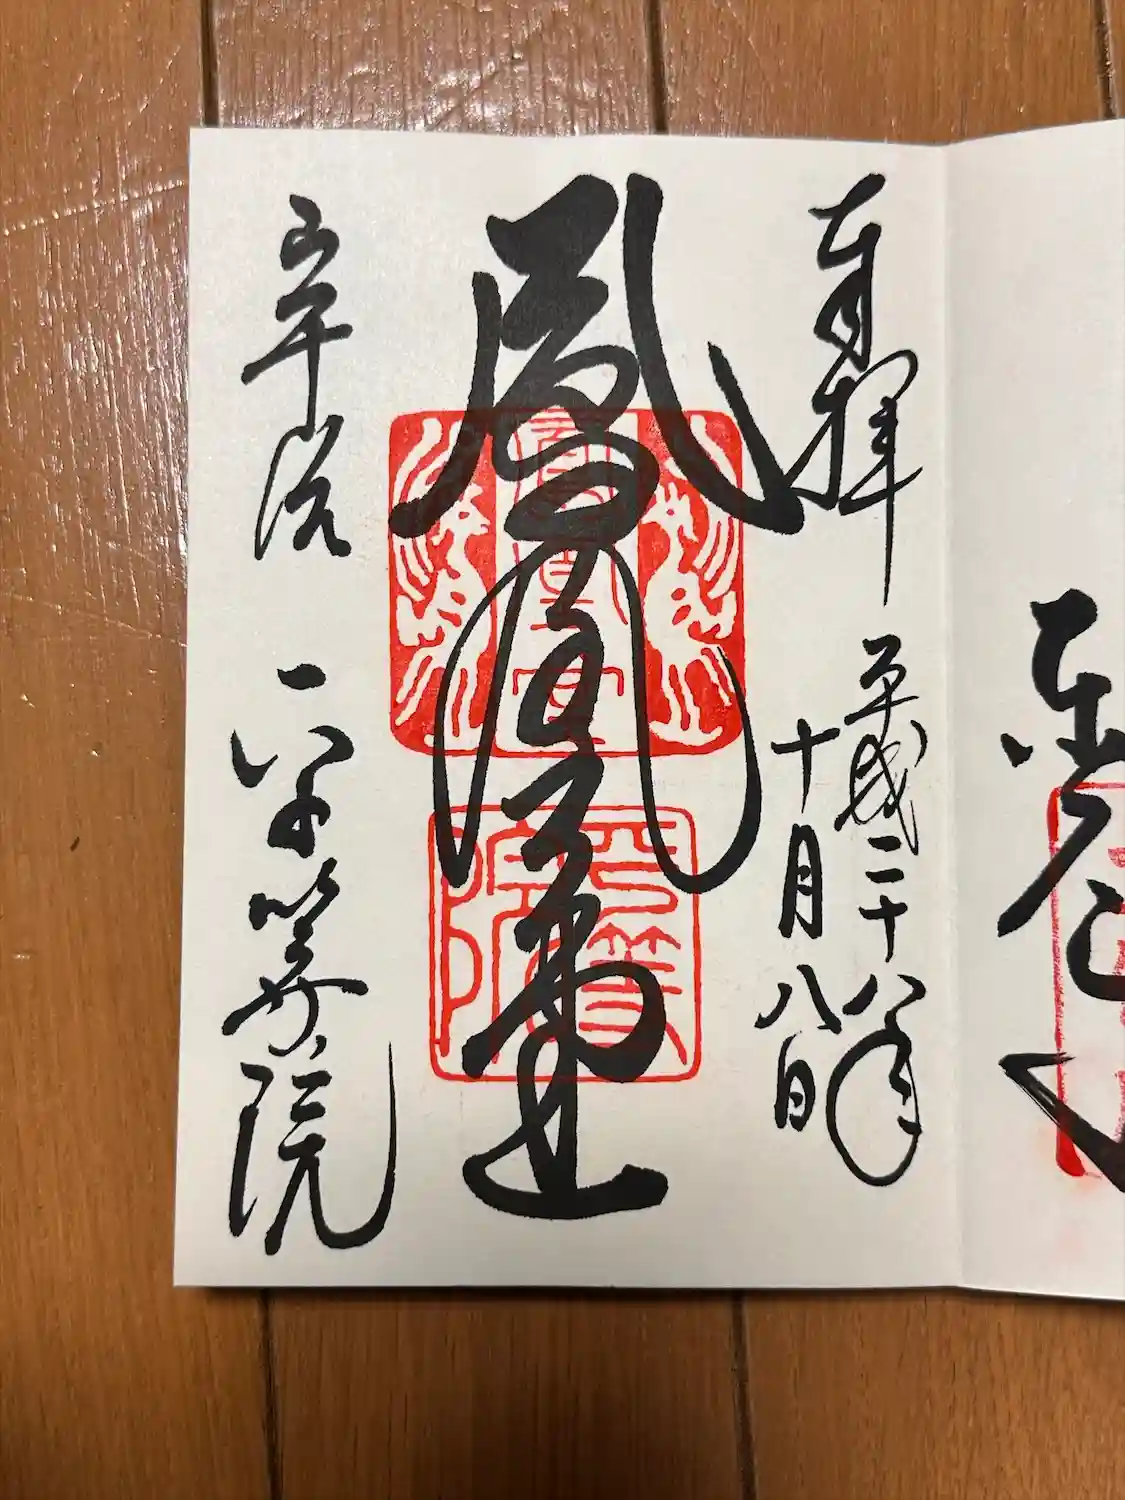 奉拝
平成二十八年
十月八日
鳳凰堂
宇治
平等院
平等院